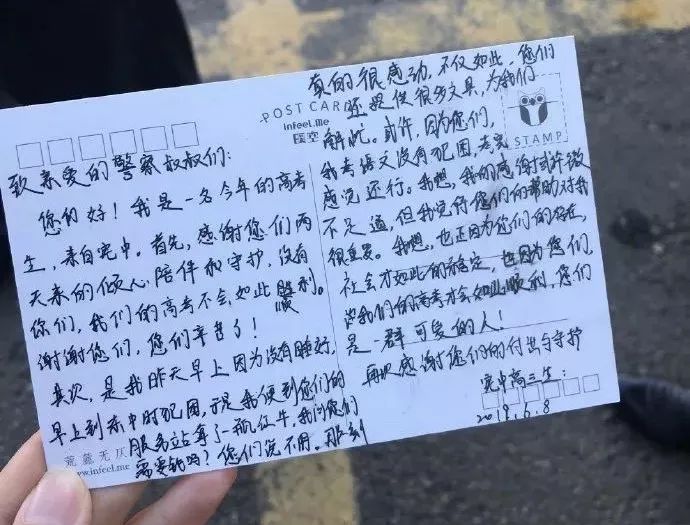 POST CARD
infeel.me
STAMP
致亲爱的警察叔叔们:
您们好!我是一名今年的高考
生,来自宪中。首先,感谢您们两
天来的倾心陪伴和守护,没有
你们,我们的高考不会如此顺利。
谢谢您们,您们辛苦了!
其次,是我昨天早上因为没有睡好,
早上到市中时犯困,于是我便到您们的
服务站拿了一瓶红牛,我问您们
需要钱吗?您们说不用。那刻
真的很感动,不仅如此,您们
还提供很多文具,为我们
解忧。或许,因为您们,
我考语文没有犯困,考完
感觉还行。我想,我的感谢或许微
不足道,但我觉得您们的帮助对我
很重要。我想,也正因为你们的存在,
社会才如此的稳定,也因为您们,
我们的高考才会如此顺利,您们
是一群可爱的人!
再次感谢您们的付出与守护
高三生:
2019.6.8
荒芜无灰
www.infeel.me